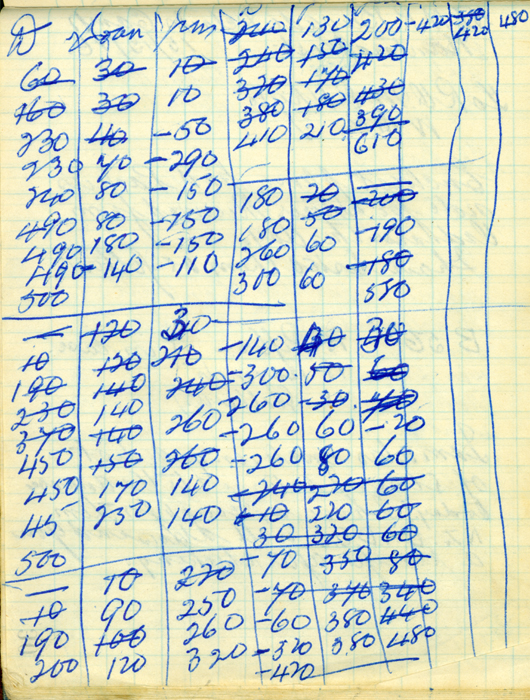 D Joan Jim 240 130 200 -420 380 480
60 30 10 240 150 420 420
160 30 10 320 170 430
230 40 -50 380 180 390
230 70 -290 410 210 610
240 80 -150 180 20 -200
490 80 -150 180 50 -190
490 180 -150 260 60 -180
490 140 -110 300 60 550
500
— 120 320
10 120 210 -140 10 30
190 140 240 -300 50 60
230 140 260 -260 -30
370 140 260 -260 60 -20
450 150 260 -260 80 60
450 170 140 -240 220 60
45 230 140 -10 220 60
500 30 320 60
— 10 220 -70 350 80
10 90 250 -70 370 340
190 100 260 -60 380 440
200 120 320 -320 380 480
-420